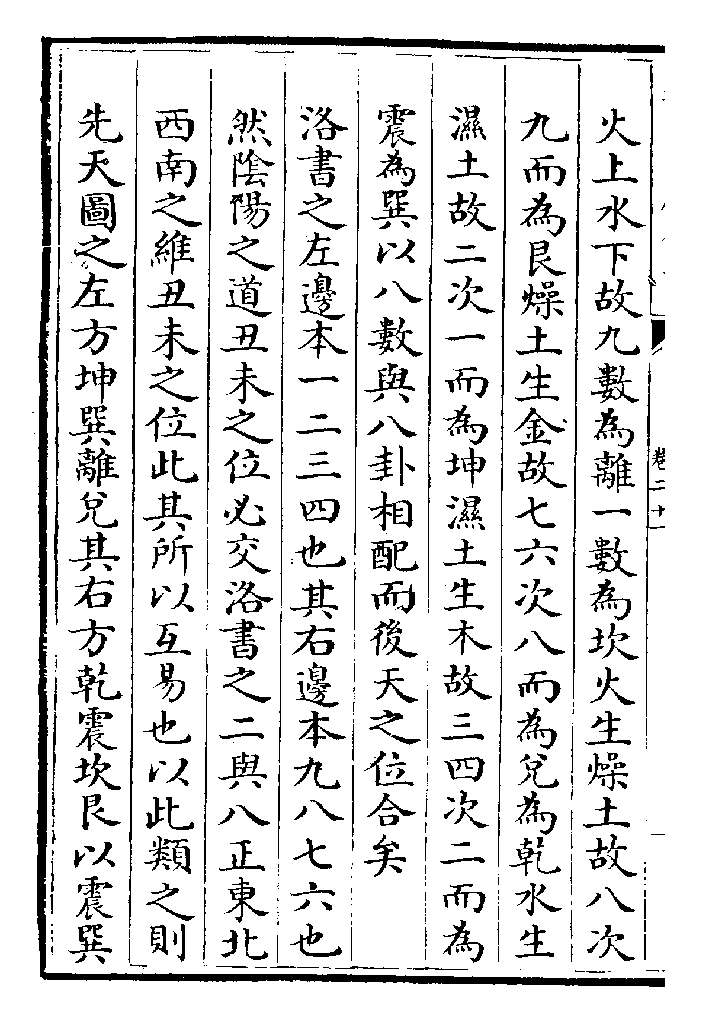 火上水下故九數為離一數為坎火生燥土故八次
九而為艮燥土生金故七六次八而為兌為乾水生
濕土故二次一而為坤濕土生木故三四次二而為
震為巽以八數與八卦相配而後天之位合矣
洛書之左邊本一二三四也其右邊本九八七六也
然陰陽之道丑未之位必交洛書之二與八正東北
西南之維丑未之位此其所以互易也以此類之則
先天圖之左方坤巽離兌其右方乾震坎艮以震巽
卷二十一